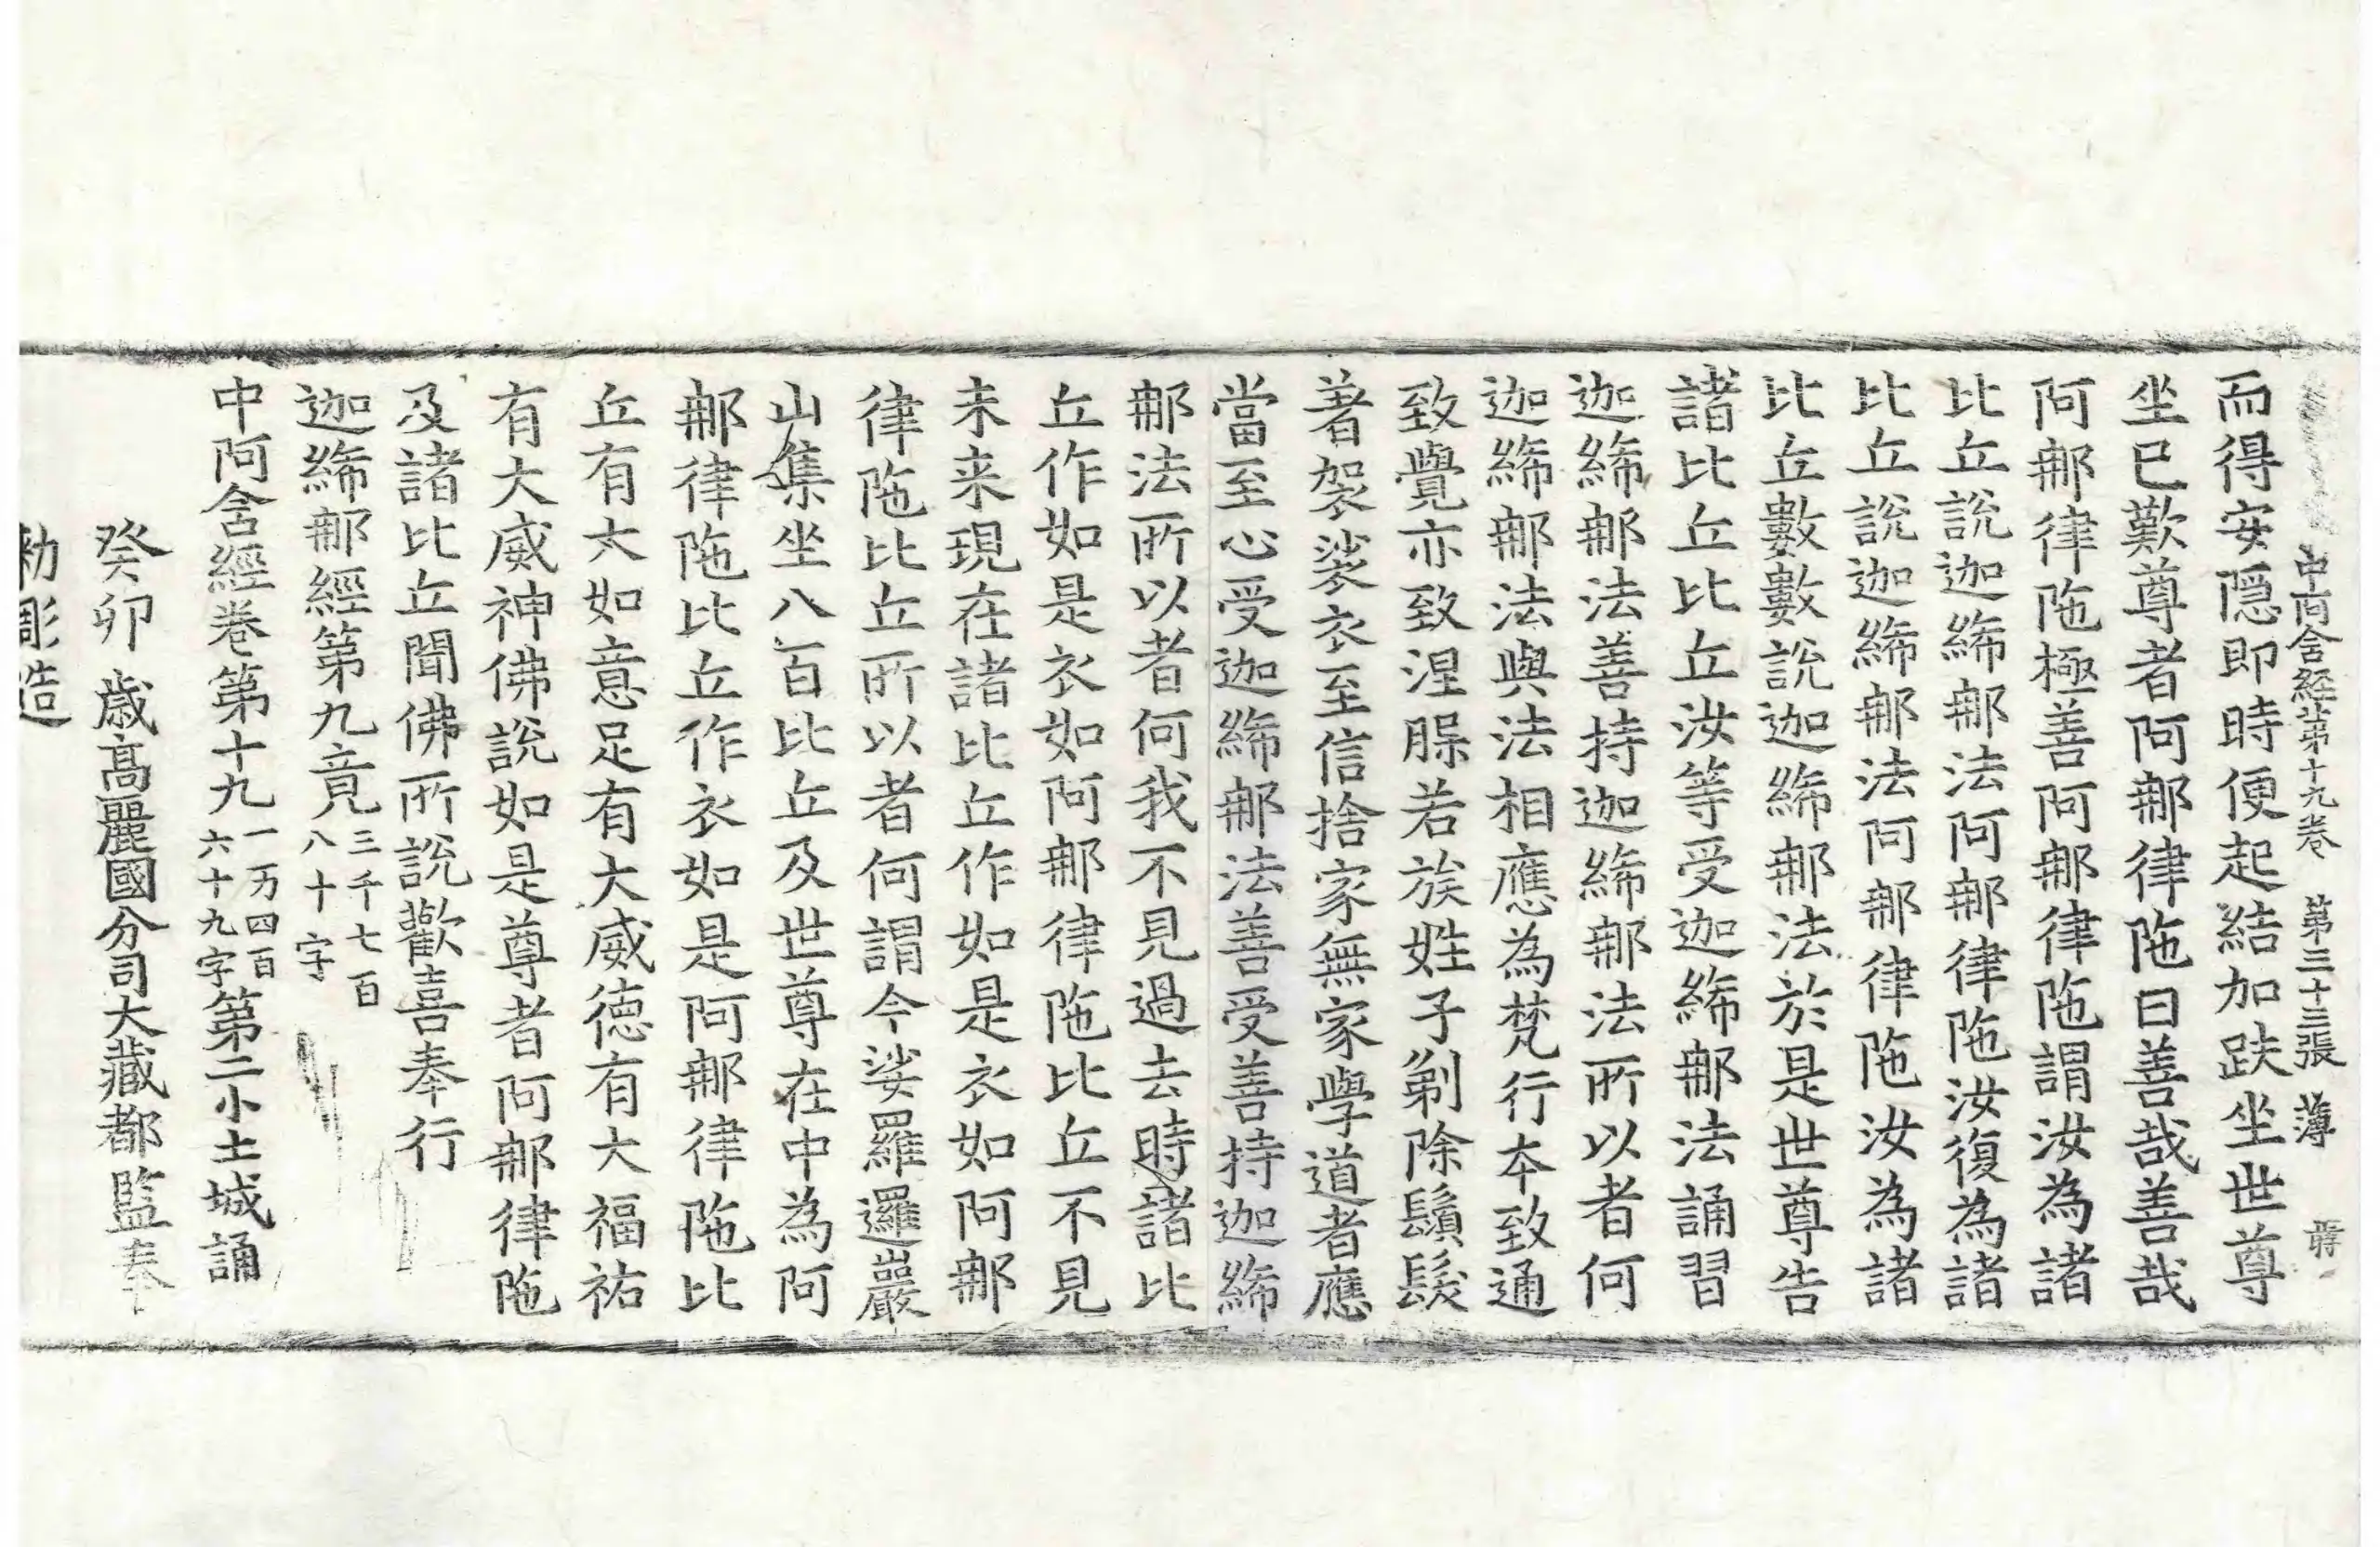 中阿含経第十九卷 第三十三張 薄
而得安隱即時便起結加趺坐世尊
坐已歎尊者阿那律陁曰善哉善哉
阿那律陁極善阿那律陁謂汝為諸
比丘說迦絺那法阿那律陁汝復為諸
比丘說迦絺那法阿那律陁汝為諸
比丘數數說迦絺那法於是世尊告
諸比丘比丘汝等受迦絺那法誦習
迦絺那法善持迦絺那法所以者何
迦絺那法與法相應為梵行本致通
致覺亦致涅槃若族姓子剃除鬚髮
著袈裟衣至信捨家無家學道者應
當至心受迦絺那法善受善持迦絺
那法所以者何我不見過去時諸比
丘作如是衣如阿那律陁比丘不見
未来現在諸比丘作如是衣如阿那
律陁比丘所以者何謂今娑羅邏巖
山集坐八百比丘及世尊在中為阿
那律陁比丘作衣如是阿那律陁比
丘有大如意足有大威德有大福祐
有大威神佛說如是尊者阿那律陁
及諸比丘聞佛所說歡喜奉行
迦絺那經第九竟三千七百八十字
中阿含經卷第十九一万四百六十九字第二小土城誦
癸卯歲高麗國分司大藏都監奉
勅彫造